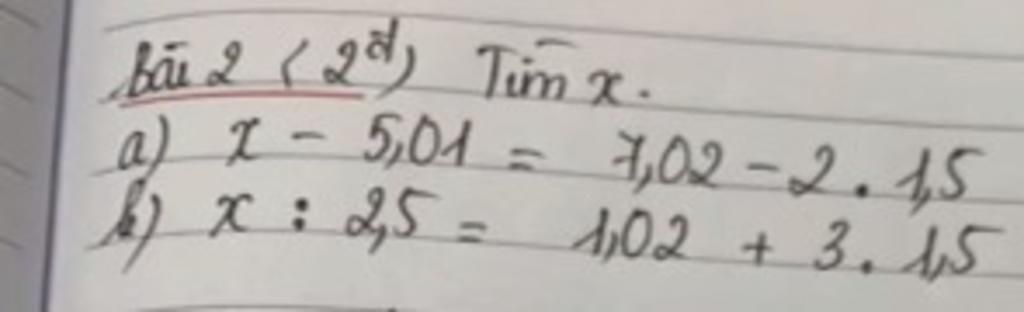 Bài 2 (2đ) Tìm x.
a) x - 5,01 = 7,02 - 2 . 1,5
b) x : 2,5 = 1,02 + 3 . 1,5